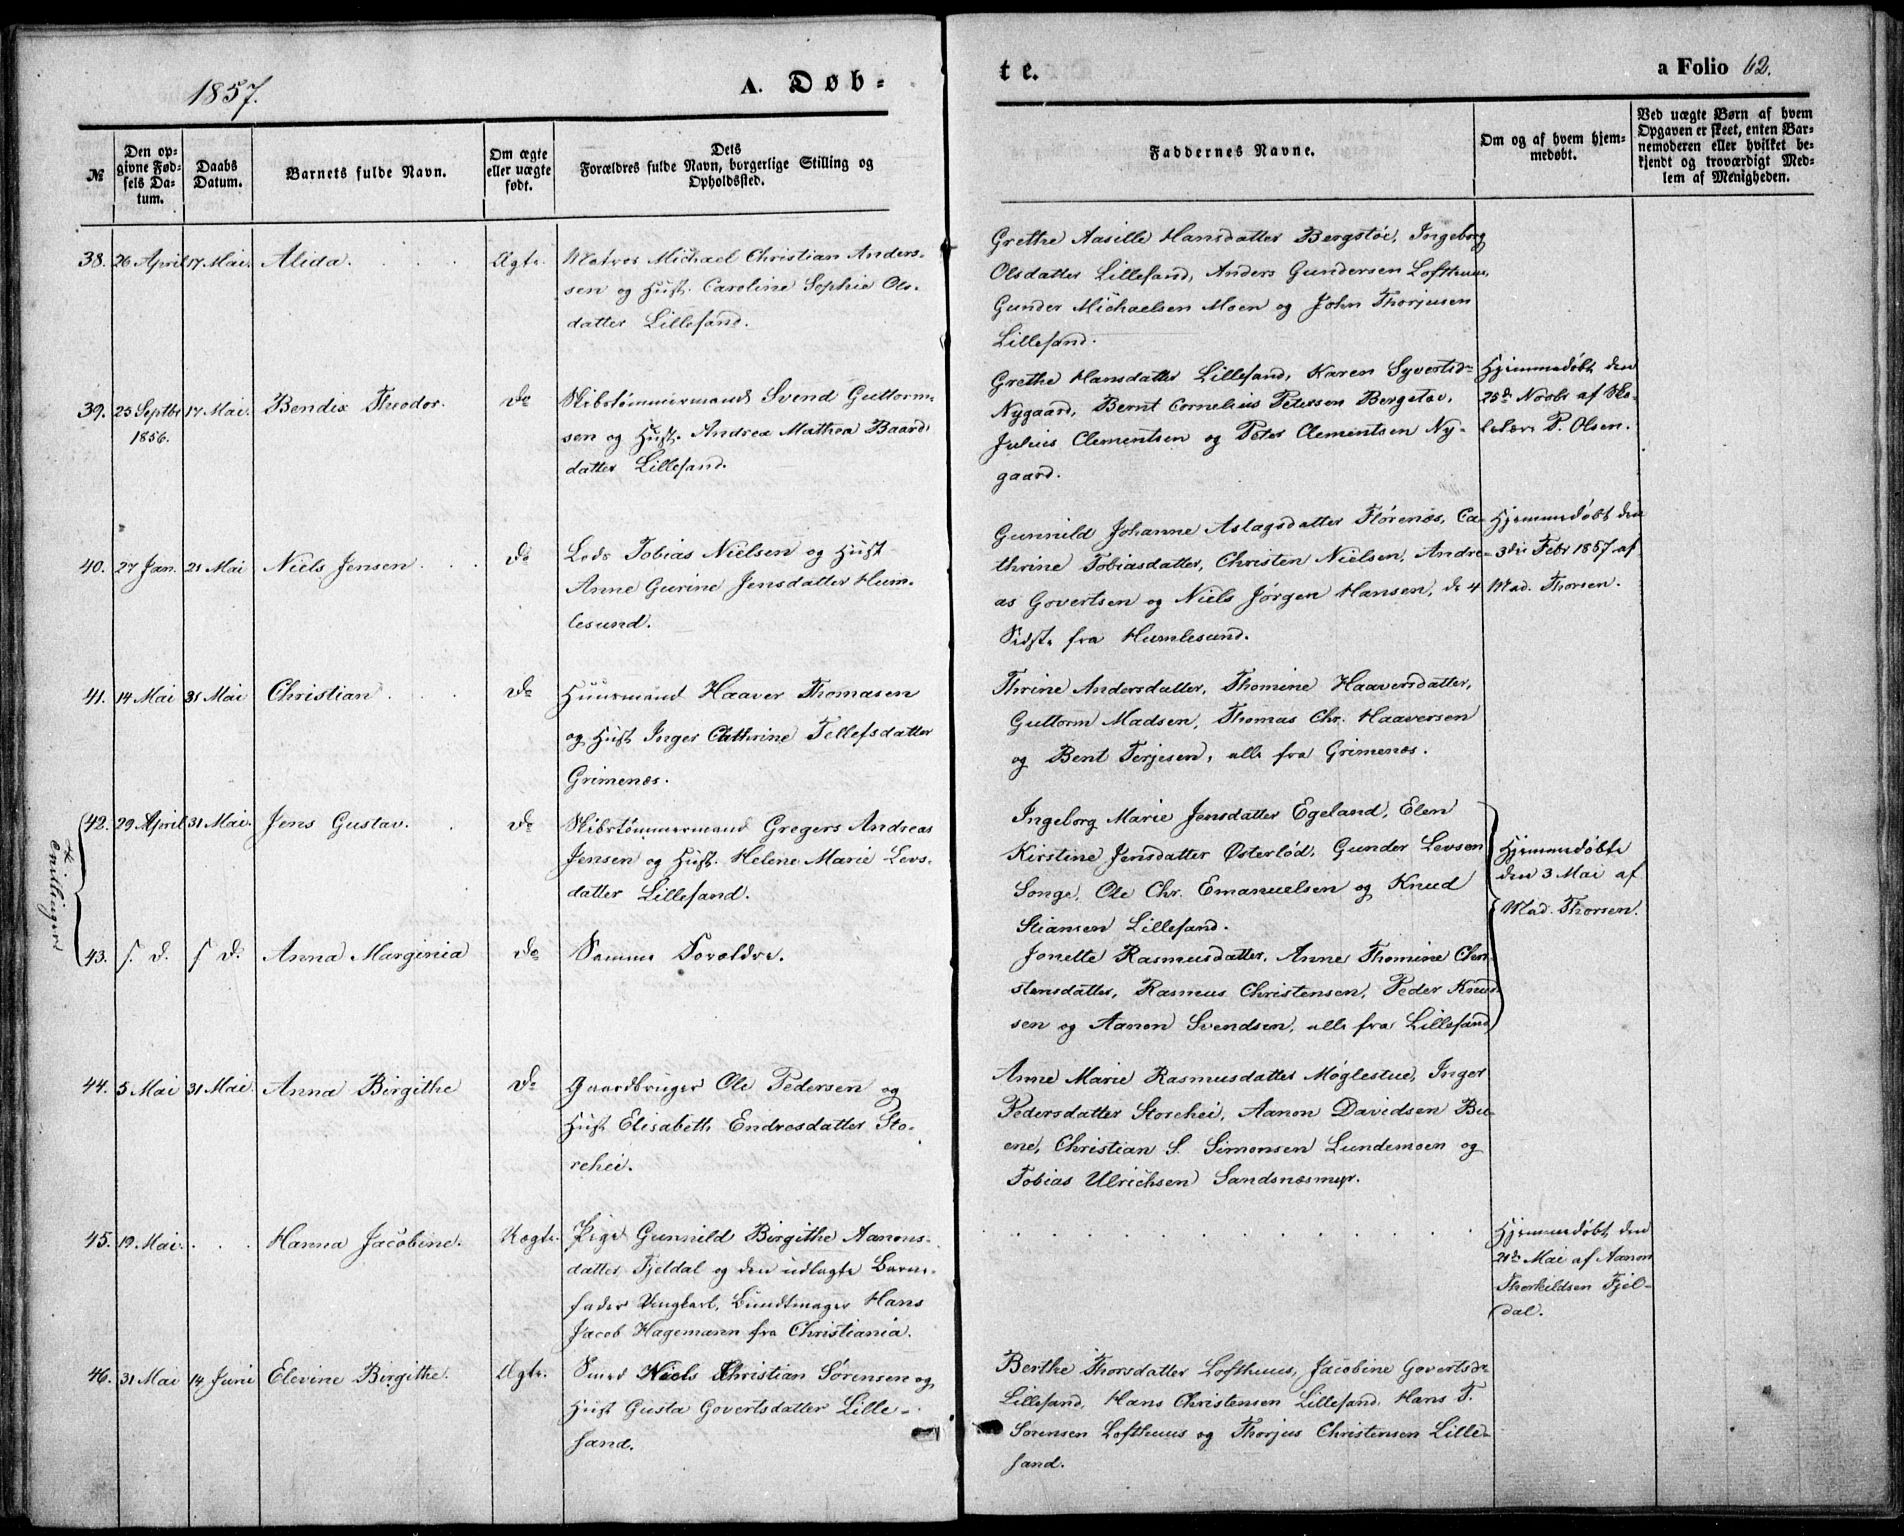 1857.
A. Døb-
te.
a Folio 62.
№
Den op-
givne Fød-
sels Da-
tum.
Daabs
Datum.
Barnets fulde Navn.
Om ægte
eller uægte
født.
Dets
Forældres fulde Navn, borgerlige Stilling og
Opholdssted.
Faddernes Navne.
Om og af hvem hjem-
medøbt.
Ved uægte Børn af hvem
Opgaven er skeet, enten Bar-
nemoderen eller hvilket be-
kjendt og troværdigt Med-
lem af Menigheden.
38. 26 April 17 Mai. Alida. Ægte.
Matros Michael Christian Anders-
sen og Hust. Caroline Sophie Ols-
datter Lillesand.
Grethe Aasille Hansdatter Bergstøe, Ingeborg
Olsdatter Lillesand, Anders Gundersen Lofthuus,
Gunder Michaelsen Moen og John Thorjusen
Lillesand.
39. 25 Septbr 1856. 17 Mai. Bendix Theodor. do
Skibstømmermand Svend Guttorm-
sen og Hust. Andrea Mathea Baards
datter Lillesand.
Grethe Hansdatter Lillesand, Karen Syvertsdr
Nygaard, Bernt Cornelius Petersen Bergstøe,
Julius Clementsen og Peter Clementsen Ny-
gaard.
Hjemmedøbt den
25de Novbr af Sko-
lelærer P. Olsen.
40. 27 Jan. 21 Mai Niels Jensen. do
Lods Tobias Nielsen og Hust
Anne Gurine Jensdatter Hum-
lesund.
Gunnild Johanne Aslagsdatter Flørenæs, Ca-
thrine Tobiasdatter, Christen Nielsen, Andre-
as Govertsen og Niels Jørgen Hansen, de 4
Sidste fra Humlesund.
Hjemmedøbt den
3die Febr 1857 af
Mad. Thorsen.
41. 14 Mai 31 Mai Christian do
Huusmand Haaver Thomasen
og Hust Inger Cathrine Tellefsdatter
Grimenæs.
Thrine Andersdatter, Thomine Haaversdatter,
Guttorm Madsen, Thomas Chr. Haaversen
og Bent Terjesen, alle fra Grimenæs.
Tvillinger
42. 29 April 31 Mai. Jens Gustav. do
Skibstømmermand Gregers Andreas
Jensen og Hust. Helene Marie Levs-
datter Lillesand.
Ingeborg Marie Jensdatter Egeland, Elen
Kirstine Jensdatter Østerlød, Gunder Levsen
Songe, Ole Chr. Emanuelsen og Knud
Stiansen Lillesand.
Hjemmedøbte
den 3 Mai af
Mad. Thorsen.
43. s. d. s d. Anna Marginia do
Samme Forældre.
Jonette Rasmusdatter, Anne Thomine Chri-
stensdatter, Rasmus Christensen, Peder Knud-
sen og Aanon Svendsen, alle fra Lillesand
44. 5 Mai 31 Mai. Anna Birgithe do
Gaardbruger Ole Pedersen og
Hust Elisabeth Endresdatter Sto-
rehei.
Anne Marie Rasmusdatter Møglestue, Inger
Pedersdatter Storehei, Aanon Davidsen Bu-
ene, Christian S. Simonsen Lundemoen og
Tobias Ulrichsen Sandsnæsmyr.
45. 19 Mai. Hanna Jacobine. Uægte.
Pige Gunnild Birgithe Aanons-
datter Fjeldal og den udlagte Barne-
fader Ungkarl, Bundtmager Hans
Jacob Hagemann fra Christiania.
Hjemmedøbt den
21de Mai af Aanon
Thorkildsen Fjel-
dal.
46. 31 Mai 14 Juni Elevine Birgithe. Ægte.
Smed Niels Christian Sørensen og
Hust Gusta Govertsdatter Lille-
sand.
Berthe Thorsdatter Lofthuus, Jacobine Govertsdr
Lillesand, Hans Christensen Lillesand, Hans T.
Sørensen Lofthuus og Thorjus Christensen Lille-
sand.